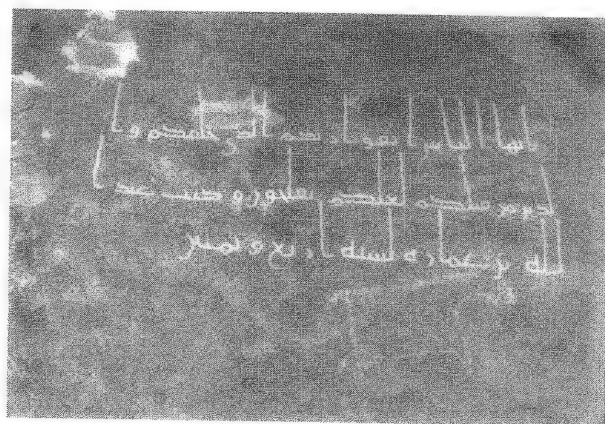 يايها الناس اتقوا ربكم الذي خلقكم وا
لذين من قبلكم لعلكم تفلحون وكتب عبد ا
لله بن عمارة لسنة اربع وثمنين